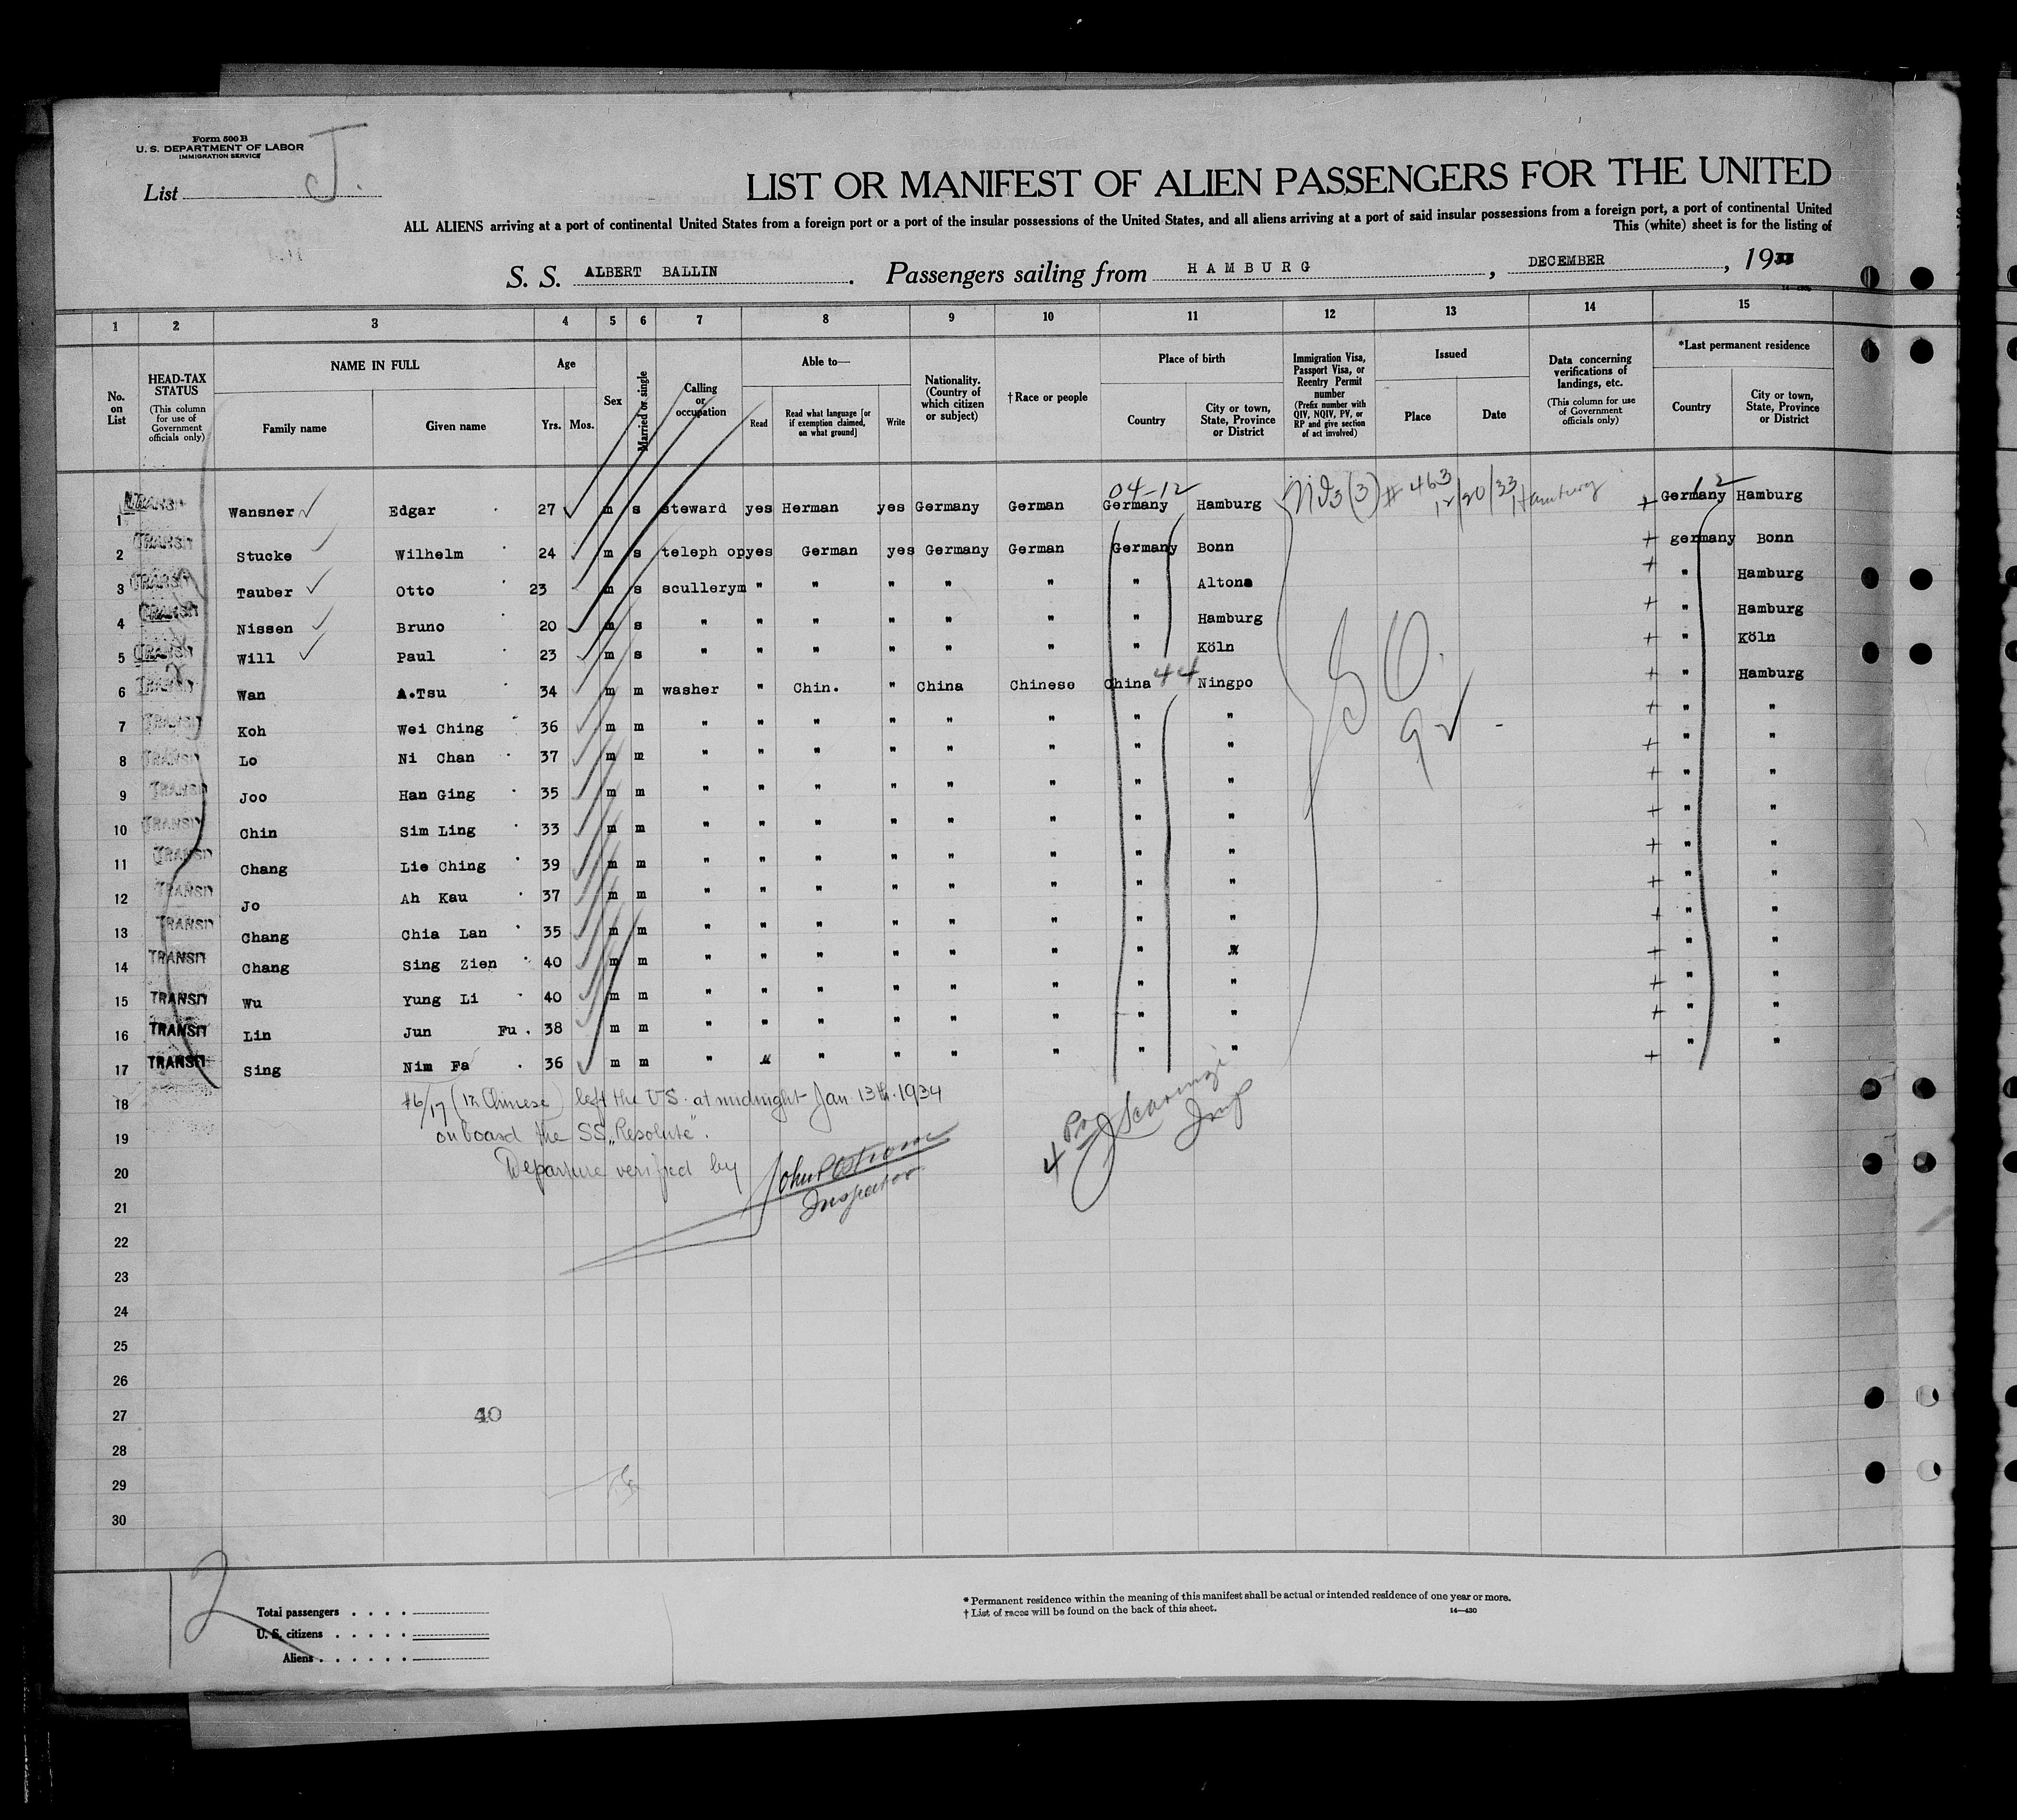 Form 500 B
U. S. DEPARTMENT OF LABOR
IMMIGRATION SERVICE
List J.
LIST OR MANIFEST OF ALIEN PASSENGERS FOR THE UNITED
ALL ALIENS arriving at a port of continental United States from a foreign port or a port of the insular possessions of the United States, and all aliens arriving at a port of said insular possessions from a foreign port, a port of continental United
This (white) sheet is for the listing of
S. S. ALBERT BALLIN. Passengers sailing from HAMBURG, DECEMBER, 1933
1 2 3 4 5 6 7 8 9 10 11 12 13 14 15
No. on List
HEAD-TAX STATUS (This column for use of Government officials only)
NAME IN FULL Family name Given name
Age Yrs. Mos.
Sex
Married or single
Calling or occupation
Able to— Read Read what language [or if exemption claimed, on what ground] Write
Nationality. (Country of which citizen or subject)
†Race or people
Place of birth Country City or town, State, Province or District
Immigration Visa, Passport Visa, or Reentry Permit number (Prefix number with QIV, NQIV, PV, or RP and give section of act involved)
Issued Place Date
Data concerning verifications of landings, etc. (This column for use of Government officials only)
*Last permanent residence Country City or town, State, Province or District
04-12 12
1 TRANSIT Wansner Edgar 27 m s steward yes Herman yes Germany German Germany Hamburg (3) # 463 12/20/33 Hamburg + Germany Hamburg
2 TRANSIT Stucke Wilhelm 24 m s teleph op yes German yes Germany German Germany Bonn + germany Bonn
3 TRANSIT Tauber Otto 23 m s scullerym " " " " " " Altona + " Hamburg
4 TRANSIT Nissen Bruno 20 m s " " " " " " " Hamburg + " Hamburg
5 TRANSIT Will Paul 23 m s " " " " " " " Köln + " Köln
6 TRANSIT Wan A.Tsu 34 m m washer " Chin. " China Chinese China 44 Ningpo + " Hamburg
7 TRANSIT Koh Wei Ching 36 m m " " " " " " " " + " "
8 TRANSIT Lo Ni Chan 37 m m " " " " " " " " + " "
9 TRANSIT Joo Han Ging 35 m m " " " " " " " " + " "
10 TRANSIT Chin Sim Ling 33 m m " " " " " " " " + " "
11 TRANSIT Chang Lie Ching 39 m m " " " " " " " " + " "
12 TRANSIT Jo Ah Kau 37 m m " " " " " " " " + " "
13 TRANSIT Chang Chia Lan 35 m m " " " " " " " " + " "
14 TRANSIT Chang Sing Zien 40 m m " " " " " " " " + " "
15 TRANSIT Wu Yung Li 40 m m " " " " " " " " + " "
16 TRANSIT Lin Jun Fu. 38 m m " " " " " " " " + " "
17 TRANSIT Sing Nim Fa 36 m m " " " " " " " " + " "
18 #6/17 (12 Chinese) left the US. at midnight Jan. 13th. 1934
19 on board the SS „Resolute".
20 Departure verified by
21 Inspector
22
23
24
25
26
27 40
28
29
30
12
Total passengers
U. S. citizens
Aliens
* Permanent residence within the meaning of this manifest shall be actual or intended residence of one year or more.
† List of races will be found on the back of this sheet.
14—430